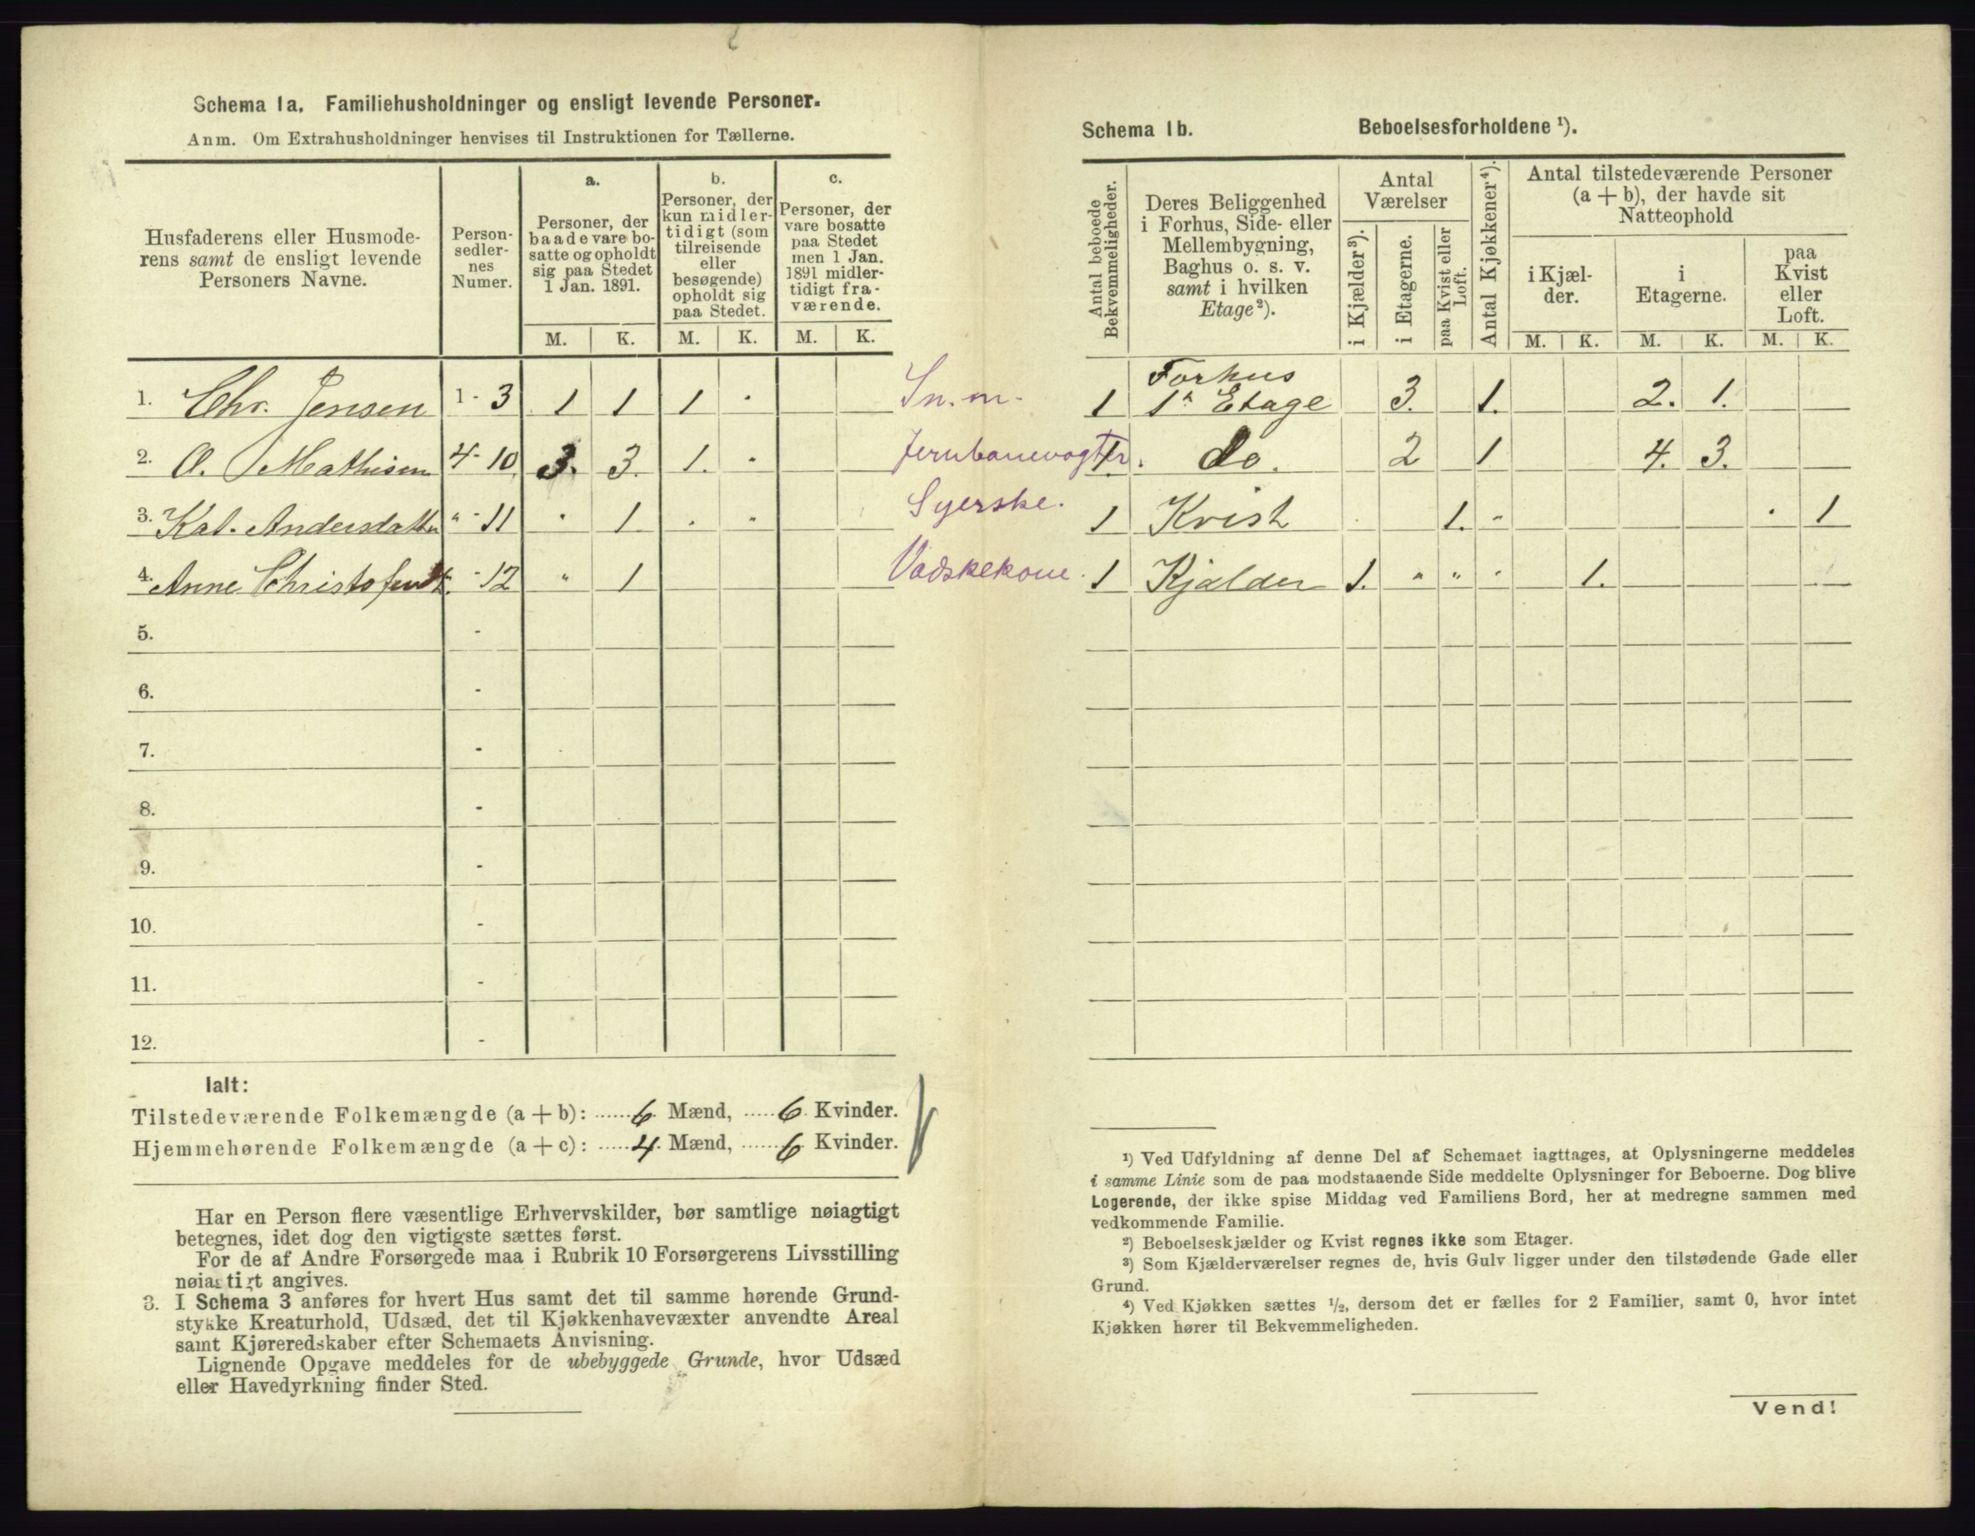 Schema 1a. Familiehusholdninger og ensligt levende Personer.
Anm. Om Extrahusholdninger henvises til Instruktionen for Tællerne.
Husfaderens eller Husmoderens samt de ensligt levende Personers Navne.
Person-sedler-nes Numer.
a.
Personer, der baade vare bosatte og opholdt sig paa Stedet 1 Jan. 1891.
b.
Personer, der kun midlertidigt (som tilreisende eller besøgende) opholdt sig paa Stedet.
c.
Personer, der vare bosatte paa Stedet men 1 Jan. 1891 midlertidigt fraværende.
M. K. M. K. M. K.
1. Chr. Jensen 1 - 3 1 1 1 "
2. O. Mathisen 4 - 10 3. 3. 1. "
3. Kat. Andersdatter " - 11 " 1 " "
4. Anne Christofersdt. - 12 " 1
5. -
6. -
7. -
8. -
9. -
10. -
11. -
12. -
Ialt:
Tilstedeværende Folkemængde (a + b): ...... 6 Mænd, ..... 6 Kvinder.
Hjemmehørende Folkemængde (a + c): ..... 4 Mænd, ...... 6 Kvinder.
Har en Person flere væsentlige Erhvervskilder, bør samtlige nøiagtigt
betegnes, idet dog den vigtigste sættes først.
For de af Andre Forsørgede maa i Rubrik 10 Forsørgerens Livsstilling
nøiagtigt angives.
3. I Schema 3 anføres for hvert Hus samt det til samme hørende Grund-
stykke Kreaturhold, Udsæd, det til Kjøkkenhavevæxter anvendte Areal
samt Kjøreredskaber efter Schemaets Anvisning.
Lignende Opgave meddeles for de ubebyggede Grunde, hvor Udsæd
eller Havedyrkning finder Sted.
Schema 1b. Beboelsesforholdene ¹).
Antal beboede Bekvemmeligheder.
Deres Beliggenhed i Forhus, Side- eller Mellembygning, Baghus o. s. v. samt i hvilken Etage ²).
Antal Værelser
i Kjælder ³).
i Etagerne.
paa Kvist eller Loft.
Antal Kjøkkener ⁴).
Antal tilstedeværende Personer (a + b), der havde sit Natteophold
i Kjælder.
i Etagerne.
paa Kvist eller Loft.
M. K. M. K. M. K.
Sn. m. 1 Forhus 1ˢ Etage 3. 1. 2. 1.
Jernbanevogter. 1 do. 2 1 4. 3.
Syerske. 1 Kvist 1. " . 1
Vadskekone. 1 Kjælder 1. " " " 1.
¹) Ved Udfyldning af denne Del af Schemaet iagttages, at Oplysningerne meddeles
i samme Linie som de paa modstaaende Side meddelte Oplysninger for Beboerne. Dog blive
Logerende, der ikke spise Middag ved Familiens Bord, her at medregne sammen med
vedkommende Familie.
²) Beboelseskjælder og Kvist regnes ikke som Etager.
³) Som Kjælderværelser regnes de, hvis Gulv ligger under den tilstødende Gade eller
Grund.
⁴) Ved Kjøkken sættes ½, dersom det er fælles for 2 Familier, samt 0, hvor intet
Kjøkken hører til Bekvemmeligheden.
Vend!